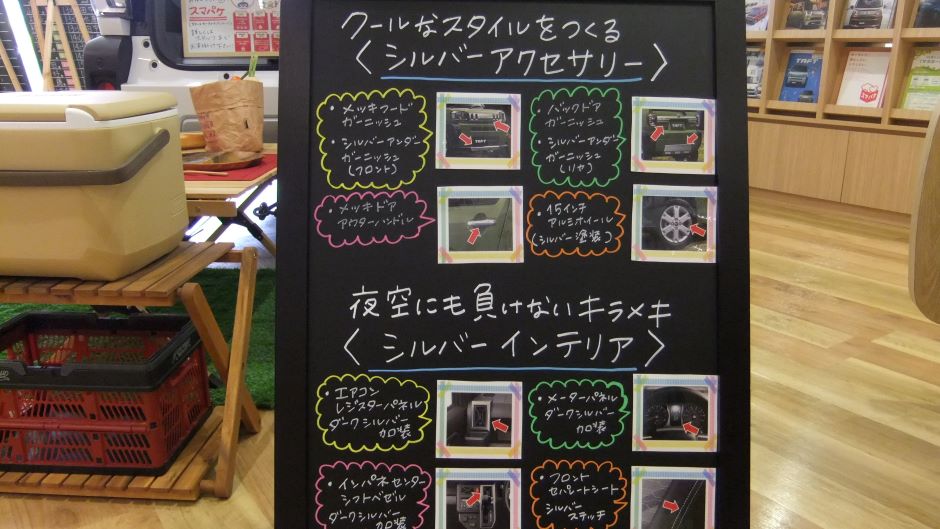 スマパケ
クールなスタイルをつくる
〈シルバーアクセサリー〉
・メッキフード
ガーニッシュ
・シルバーアンダー
ガーニッシュ
(フロント)
TAFT
・バックドア
ガーニッシュ
・シルバーアンダー
ガーニッシュ
(リヤ)
・メッキドア
アウターハンドル
・15インチ
アルミホイール
(シルバー塗装)
夜空にも負けないキラメキ
〈シルバーインテリア〉
・エアコン
レジスターパネル
ダークシルバー
加装
・メーターパネル
ダークシルバー
加装
・インパネセンター
シフトベゼル
ダークシルバー
加装
・フロント
セパレートシート
シルバー
ステッチ
TAFT